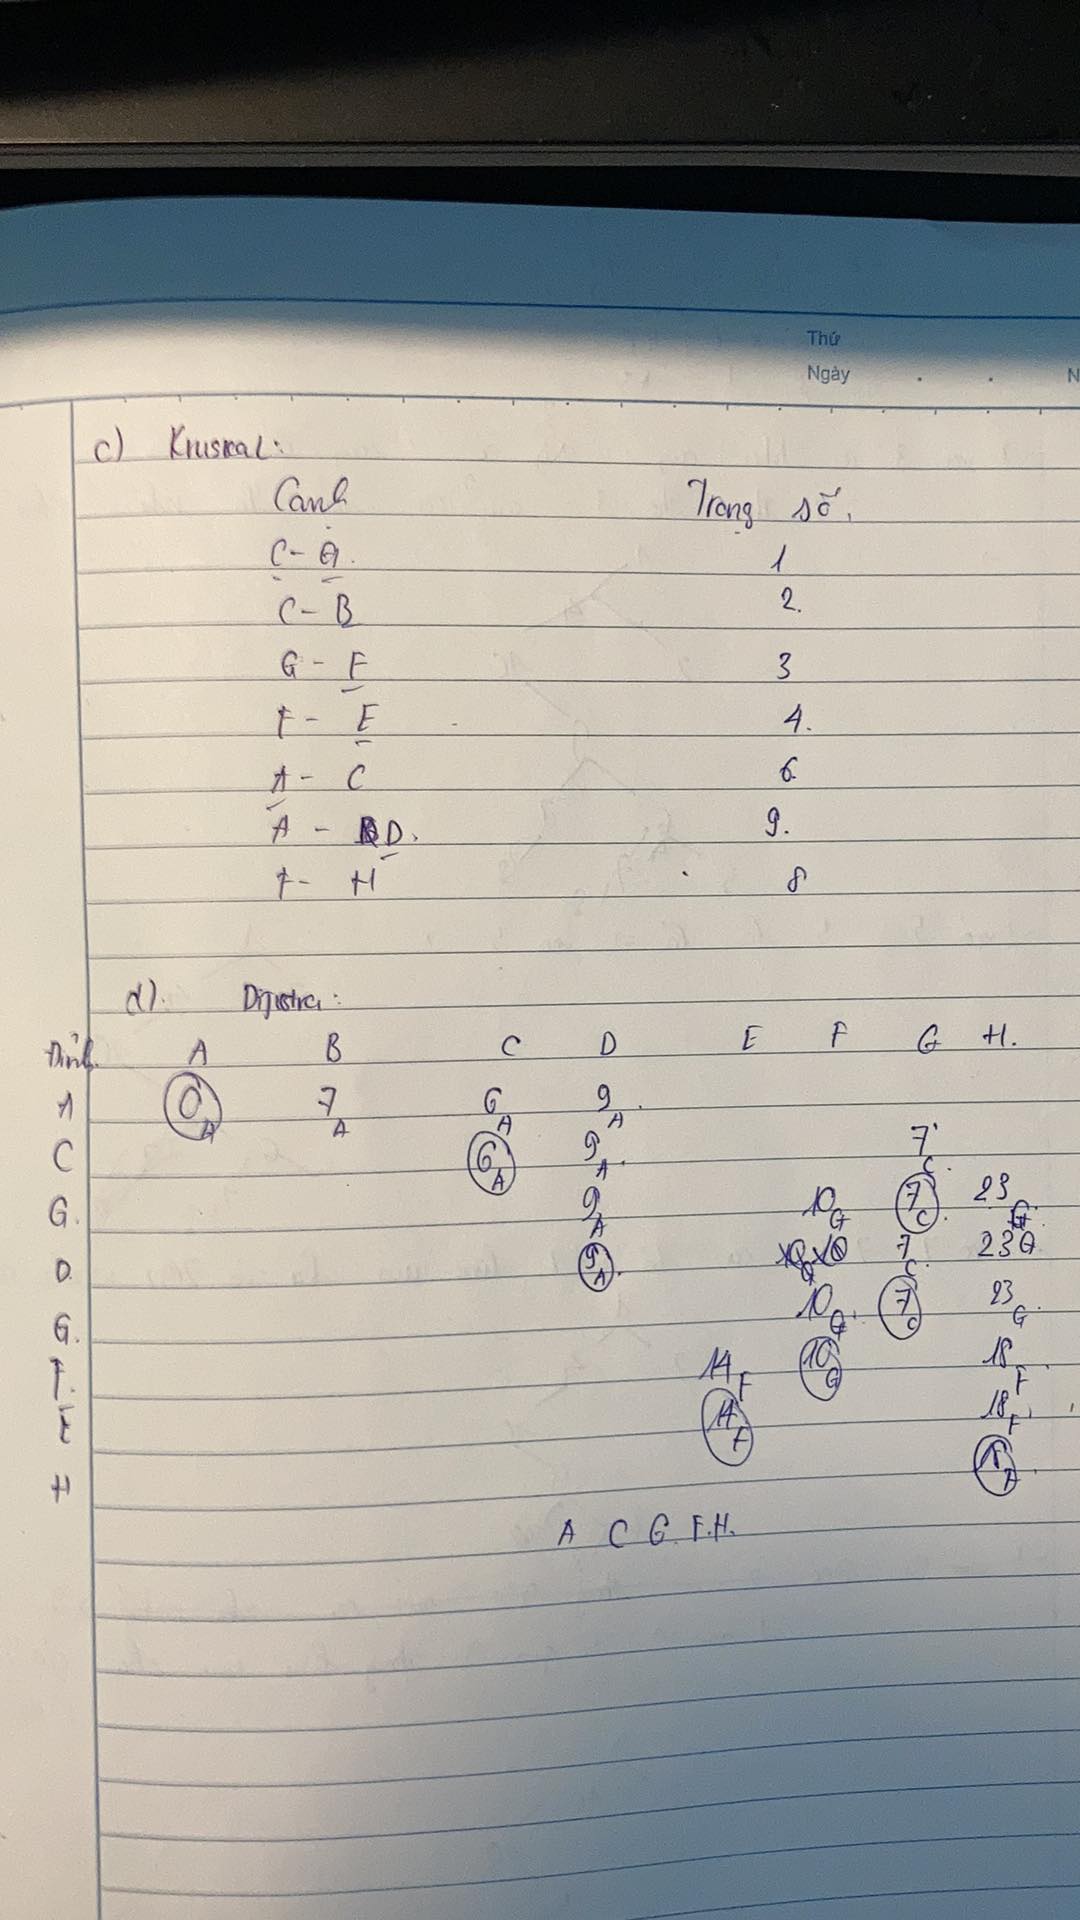 Thứ
Ngày N
c) Kruskal:
Cạnh Trọng số.
C - G. 1
C - B 2.
G - F 3
F - E 4.
A - C 6
A - D. 9.
F - H 8
d). Dijkstra:
Đỉnh. A B C D E F G H.
A 0A 7A 6A 9A.
C 6A 9A. 7C.
G. 9A 10G 7C. 23G.
D. 9A. 7C. 23G.
G. 10G. 7C 23G.
F. 14F 10G 18F.
E 14F 18F
H 18F.
A C G. F.H.